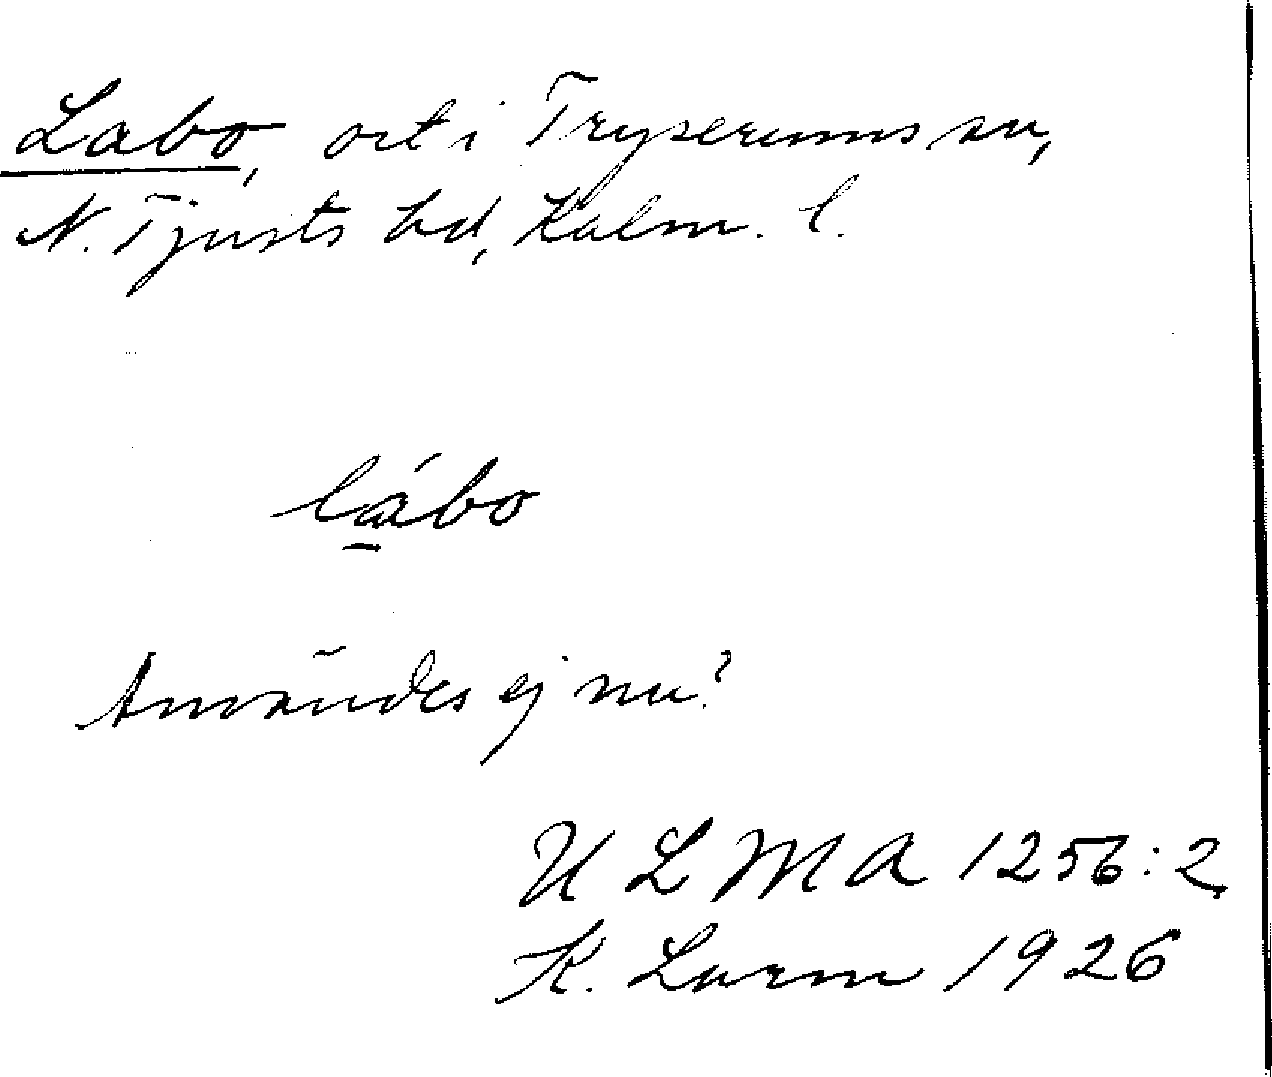 Labo, ort i Tryserums sn,
N. Tjusts hd, Kalm. l.
lábo
Användes ej nu?
ULMA 1256:2
K. Lorm 1926